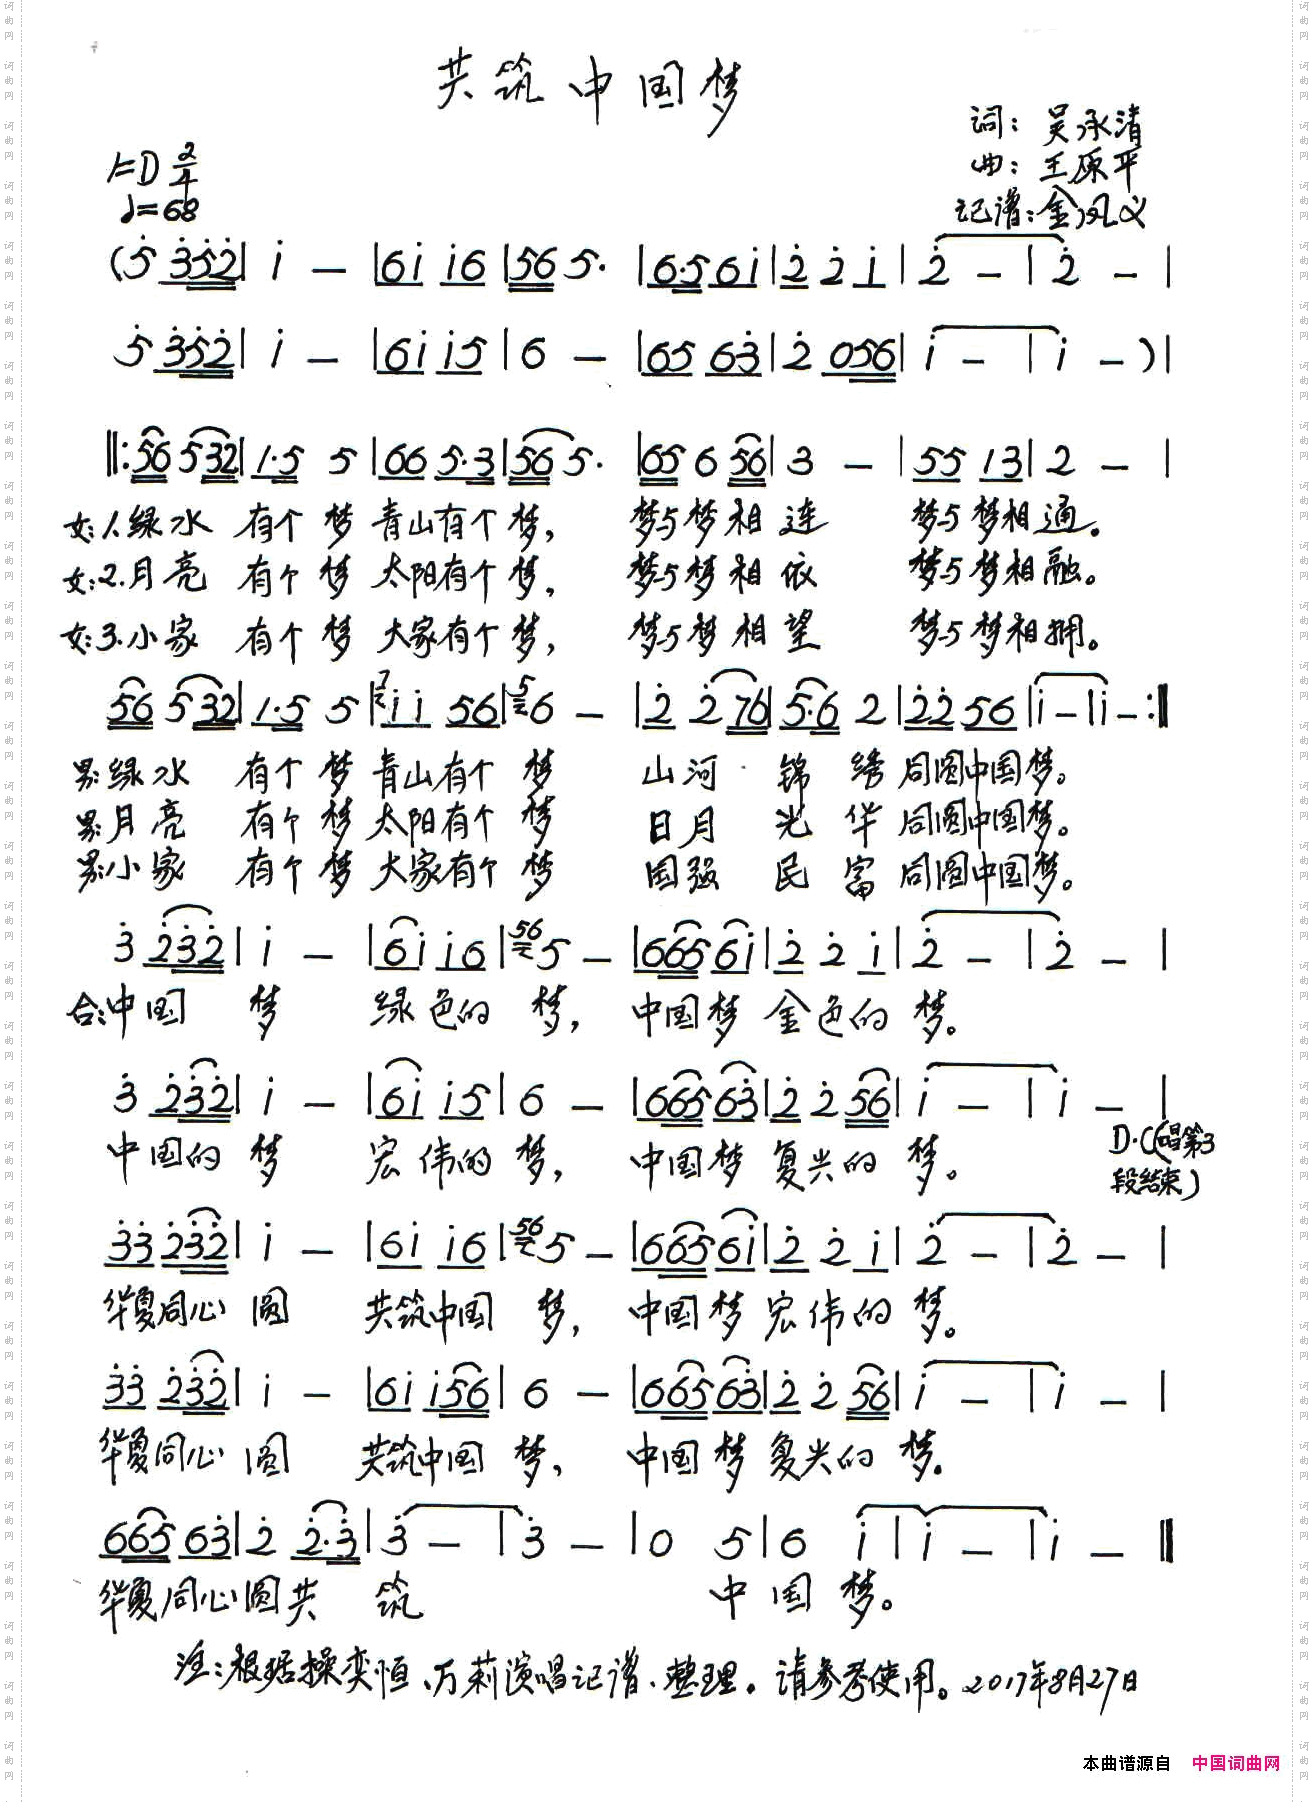 共筑中国梦
词：吴承清
曲：王原平
记谱：金凤义
1=D 2/4
♩=68
(5 352|1 — |61 16|56 5· |6·5 61|2 2 1|2 — |2 — |
5 352|1 — |61 15|6 — |65 63|2 056|1 — |1 — )|
‖:56 532|1·5 5|66 5·3|56 5· |65 6 56|3 — |55 13|2 — |
女:1.绿水 有个 梦 青山有个 梦， 梦与梦相 连 梦与梦相通。
女:2.月亮 有个 梦 太阳有个 梦， 梦与梦相 依 梦与梦相融。
女:3.小家 有个 梦 大家有个 梦， 梦与梦相 望 梦与梦相拥。
56 532|1·5 5|7 11 56|5 6 — |2 2 76|5·6 2|22 56|1 — |1 — :‖
男:绿水 有个 梦 青山有个 梦 山河 锦绣 同圆中国梦。
男:月亮 有个 梦 太阳有个 梦 日月 光华 同圆中国梦。
男:小家 有个 梦 大家有个 梦 国强 民富 同圆中国梦。
3 232|1 — |61 16|56 5 — |665 61|2 2 1|2 — |2 — |
合:中国 梦 绿色的 梦， 中国梦 金色的 梦。
3 232|1 — |61 15|6 — |665 63|2 2 56|1 — |1 — |
中国的 梦 宏伟的 梦， 中国梦 复兴的 梦。
D·C(唱第3
段结束)
33 232|1 — |61 16|56 5 — |665 61|2 2 1|2 — |2 — |
华夏同心 圆 共筑中国 梦， 中国梦 宏伟的 梦。
33 232|1 — |61 156|6 — |665 63|2 2 56|1 — |1 — |
华夏同心 圆 共筑中国 梦， 中国梦 复兴的 梦。
665 63|2 2·3|3 — |3 — |0 5|6 1|1 — |1 — ‖
华夏同心圆共 筑 中国 梦。
注：根据操奕恒、万莉演唱记谱、整理。请参考使用。2017年8月27日
本曲谱源自 中国词曲网